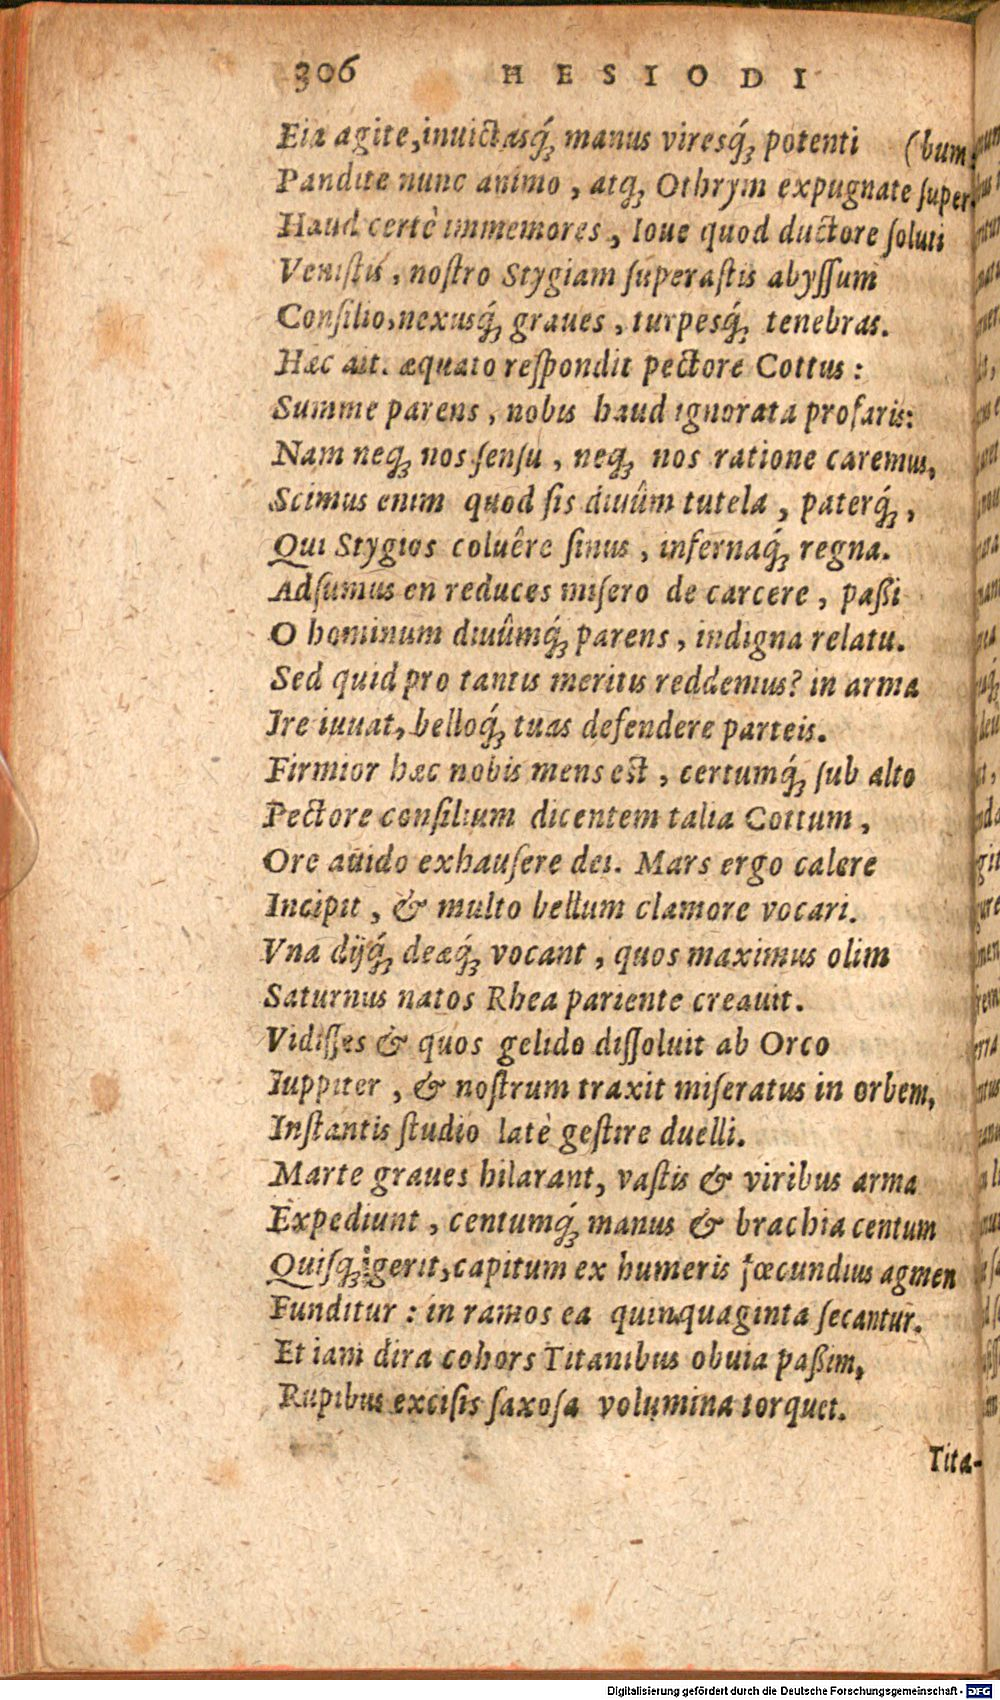 306 HESIODI
Eia agite, inuictasq́; manus viresq́; potenti (bum.
Pandite nunc animo, atq; Othrym expugnate super-
Haud certè immemores, Ioue quod ductore soluti
Venistis, nostro Stygiam superastis abyssum
Consilio, nexusq́; graues, turpesq́; tenebras.
Hæc ait. æquato respondit pectore Cottus:
Summe parens, nobis haud ignorata profaris:
Nam neq; nos sensu, neq; nos ratione caremus,
Scimus enim quod sis diuûm tutela, paterq́;,
Qui Stygios coluêre sinus, infernaq́; regna.
Adsumus en reduces misero de carcere, paßi
O hominum diuûmq́; parens, indigna relatu.
Sed quid pro tantis meritis reddemus? in arma
Ire iuuat, belloq́; tuas defendere parteis.
Firmior hæc nobis mens est, certumq́; sub alto
Pectore consilium dicentem talia Cottum,
Ore auido exhausere dei. Mars ergo calere
Incipit, & multo bellum clamore vocari.
Vna dijq́; deæq́; vocant, quos maximus olim
Saturnus natos Rhea pariente creauit.
Vidisses & quos gelido dissoluit ab Orco
Iuppiter, & nostrum traxit miseratus in orbem,
Instantis studio latè gestire duelli.
Marte graues hilarant, vastis & viribus arma
Expediunt, centumq́; manus & brachia centum
Quisq; gerit, capitum ex humeris fœcundius agmen
Funditur: in ramos ea quinquaginta secantur.
Et iam dira cohors Titanibus obuia paßim,
Rupibus excisis saxosa volumina torquet.
Tita-
Digitalisierung gefördert durch die Deutsche Forschungsgemeinschaft - DFG